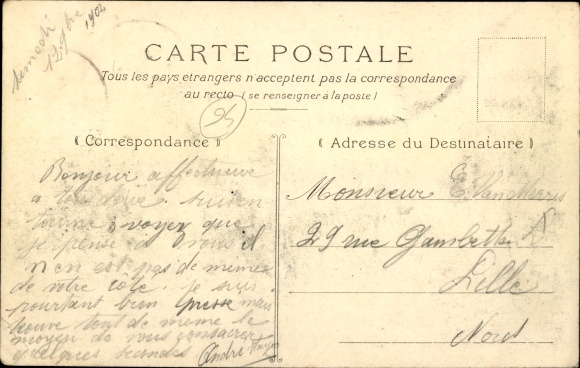 Samedi
12 1902
CARTE POSTALE
Tous les pays etrangers n'acceptent pas la correspondance
au recto (se renseigner à la poste)
25
Correspondance
Bonjour affectueux
a tous deux
voyez que
je pense à vous il
n'en est pas de meme
de votre coté. je suis
pourtant bien presse mais
trouve tout de meme le
moyen de vous consacrer
quelques secondes André
Adresse du Destinataire
Monsieur E.
29 rue Gambetta
Lille
Nord